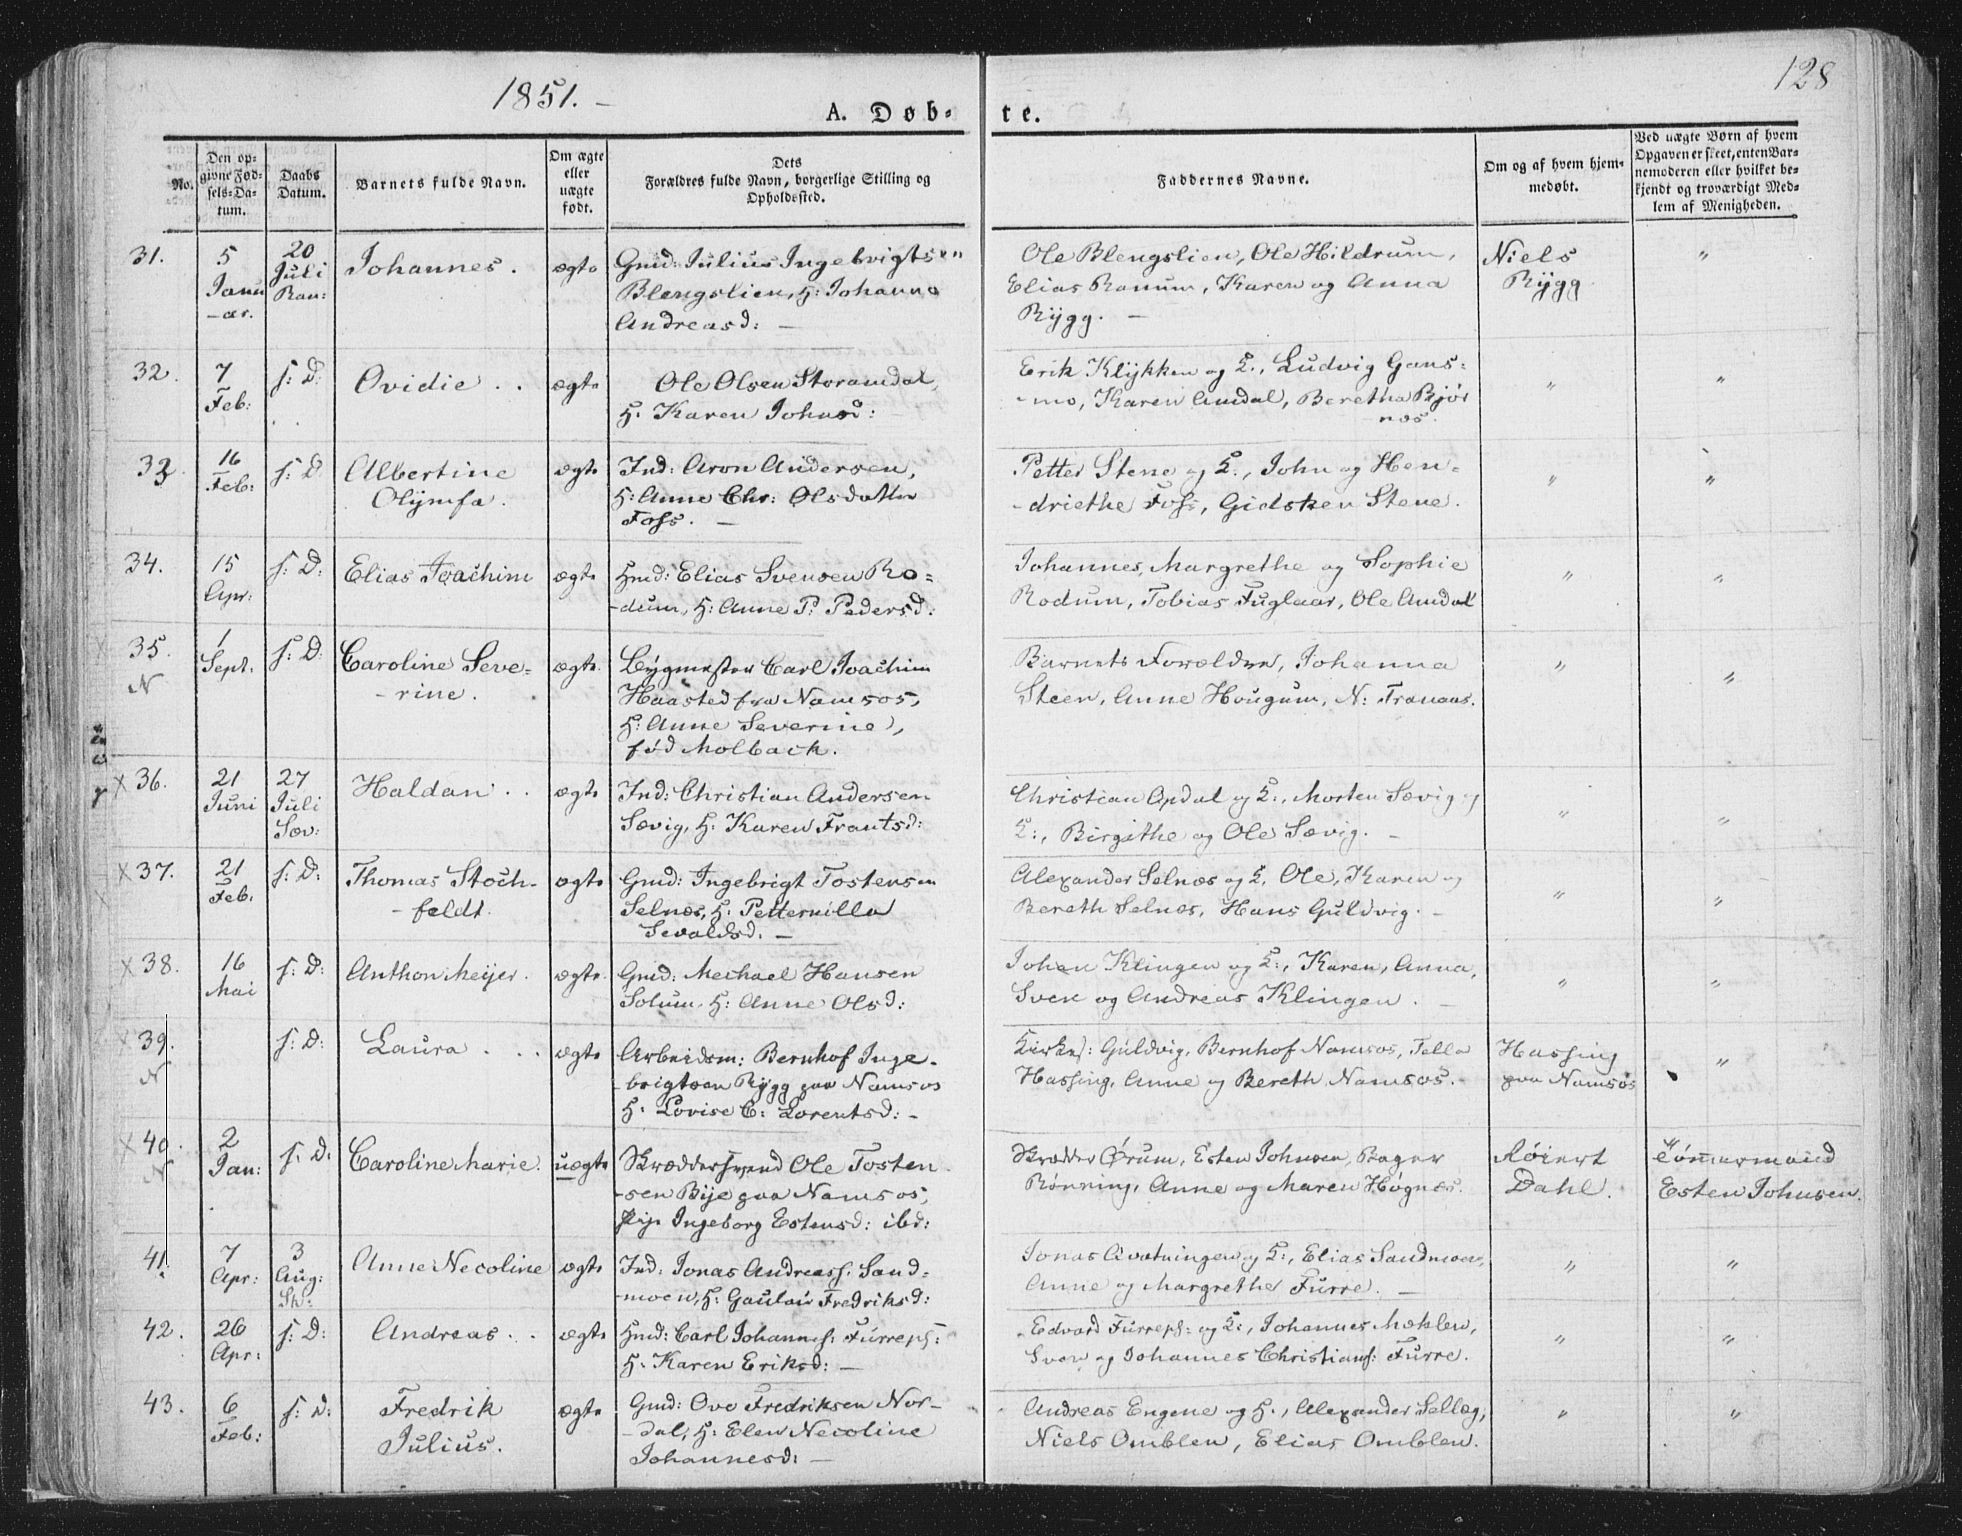 1851. –
128
A. Døb-
te.
No.
Den op-
givne Fød-
sels-Da-
tum.
Daabs
Datum.
Barnets fulde Navn.
Om ægte
eller
uægte
født.
Dets
Forældres fulde Navn, borgerlige Stilling og
Opholdssted.
Faddernes Navne.
Om og af hvem hjem-
medøbt.
Ved uægte Børn af hvem
Opgaven er skeet, enten Bar-
nemoderen eller hvilket be-
kjendt og troværdigt Med-
lem af Menigheden.
31.
5
Janu
-ar.
20
Juli
Ran:
Johannes.
ægte
Gmd: Julius Ingebrigtsen
Blengslien, H: Johanna
Andreasd: –
Ole Blengslien, Ole Hildrum,
Elias Ranum, Karen og Anna
Rygg. –
Niels
Rygg
"
32.
7
Feb:
s: D:
Ovidie . .
ægte
Ole Olsen Storamdal,
H: Karen Johnsd:
Erik Klykken og H:, Ludvig Gans-
-mo, Karen Amdal, Beretha Bjør
næs.
"
"
33.
16
Feb:
s: D
Albertine
Olymfa.
ægte
Ind: Aron Andersen,
H: Anne Chr: Olsdatter
Foss. –
Petter Stene og H:, John og Hen-
-driethe Foss, Gidsken Stene.
"
"
34.
15
Apr:
s: D:
Elias Joachim
ægte
Hmd: Elias Svensen Ro-
-dum, H: Anne P: Pedersd:
Johannes, Margrethe og Sophie
Rodum, Tobias Fuglaar, Ole Amdal
"
"
35.
N
1
Sept:
s: D:
Caroline Seve-
-rine.
ægte.
Bygmester Carl Joachim
Haasted fra Namsos,
H: Anne Severine,
fød Molback.
Barnets Forældre, Johanna
Steen, Anne Hougum, N: Tranaas.
"
"
x 36.
21
Juni
27
Juli
Sæv:
Haldan . .
ægte
Ind: Christian Andersen
Sævig, H: Karen Frantsd:
Christian Opdal og H:, Morten Sævig og
H:, Birgithe og Ole Sævig. –
"
"
x 37.
21
Feb.
s: D:
Thomas Stoch-
-feldt.
ægte
Gmd: Ingebrigt Tostensen
Selnæs, H: Petternilla
Sevaldsd. –
Alexander Selnæs og H, Ole, Karen og
Bereth Selnæs, Hans Guldvig. –
"
"
x 38.
16
Mai
s: D:
Anthon Meyer.
ægte.
Gmd: Mechael Hansen
Solum, H: Anne Olsd:
Johan Klingen og H:, Karen, Anna,
Sven og Andreas Klingen. –
"
"
x 39.
N
s: D:
Laura . . .
ægte
Arbeidsm: Bernhof Inge-
-brigtsen Rygg paa Namsos
H: Lovise C: Lorentsd: –
Kirkes: Guldvig, Bernhof Namsos, Tella
Hassing, Anne og Bereth Namsos. –
Hassing
paa Namsos
"
x 40.
N
2
Jan:
s: D:
Caroline Marie.
uægte
Skræddersvend Ole Tosten-
-sen Bye paa Namsos,
Pige Ingeborg Estensd: ibd:
Skrædder Ørum, Esten Johnsen, Bager
Rønning, Anne og Maren Høgnæs.
Røiert
Dahl.
Tømmermand
Esten Johnsen.
41.
7
Apr:
3
Aug:
Sk:
Anne Necoline
ægte
Ind: Jonas Andreass. Sand-
-moen, H: Fredriksd:
Jonas Qvatningen og H:, Elias Sandmoen,
Anne og Margrethe Furre. –
"
"
42.
26
Apr:
s: D:
Andreas . .
ægte
Hmd: Carl Johannes: Furrepl:
H: Karen Eriksd: –
Edvard Furrepl: og H:, Johannes Mæhlen,
Sven og Johannes Christians: Furre.
"
"
43.
6
Feb:
s: D:
Fredrik
Julius.
ægte
Gmd: Ove Fredriksen Nor-
-dal, H: Elen Necoline
Johannesd: –
Andreas Engene og H:, Alexander Sellæg,
Niels Omblen, Elias Omblen.
"
"